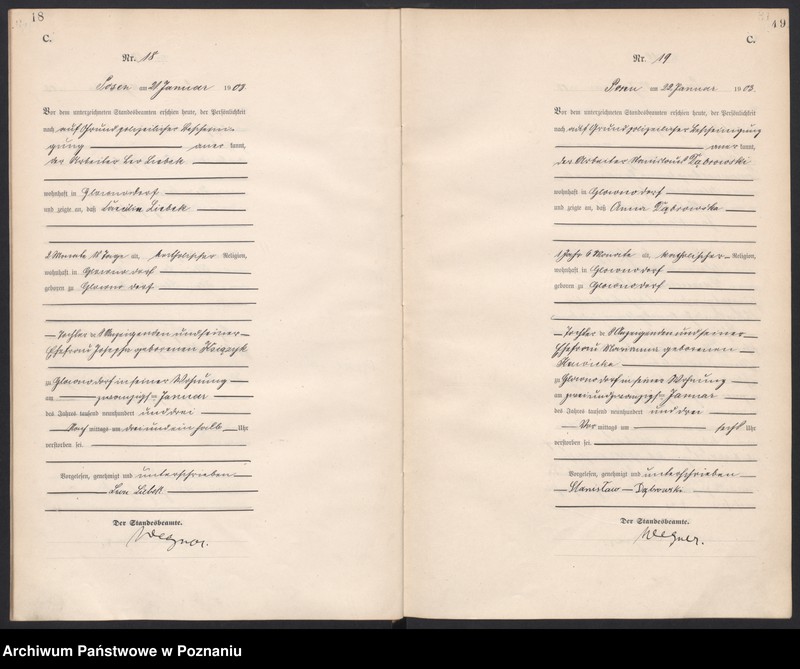 18
C.
Nr. 18
Posen am 21 Januar 1903.
Vor dem unterzeichneten Standesbeamten erschien heute, der Persönlichkeit
nach auf Grund polizeilicher Bescheini-
gung aner kannt,
der Arbeiter Leo Liebek
wohnhaft in Glownodorf
und zeigte an, daß Liebek
2 Monate Tage alt, katholischer Religion,
wohnhaft in Glowno dorf
geboren zu Glowno dorf
Tochter des Anzeigenden und seiner
Ehefrau Josepha geborenen Księżyk
zu Glowno dorf in seiner Wohnung
am zwanzigsten Januar
des Jahres tausend neunhundert und drei
Nach mittags um drei und ein halb Uhr
verstorben sei.
Vorgelesen, genehmigt und unterschrieben
Leon Liebek
Der Standesbeamte.
Wegner.
19
C.
Nr. 19
Posen am 22 Januar 1903.
Vor dem unterzeichneten Standesbeamten erschien heute, der Persönlichkeit
nach auf Grund polizeilicher Bescheinigung
aner kannt,
der Arbeiter Stanislaus Dąbrowski
wohnhaft in Glownodorf
und zeigte an, daß Anna Dąbrowska
1 Jahr 6 Monate alt, katholischer Religion,
wohnhaft in Glownodorf
geboren zu Glownodorf
Tochter des Anzeigenden und seiner
Ehefrau Marianna geborenen
zu Glowno dorf in seiner Wohnung
am zwei und zwanzigsten Januar
des Jahres tausend neunhundert und drei
Vor mittags um sechs Uhr
verstorben sei.
Vorgelesen, genehmigt und unterschrieben
Stanisław Dąbrowski
Der Standesbeamte.
Wegner.
Archiwum Państwowe w Poznaniu